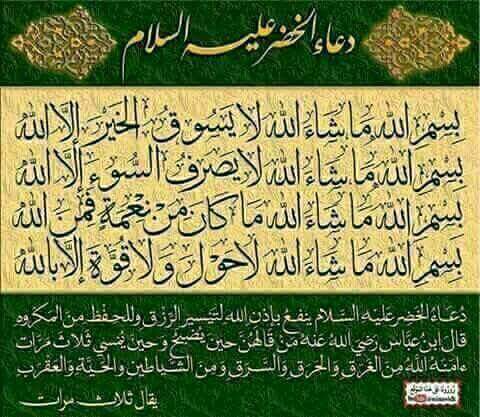 دعاء الخضر عليه السلام
بِسْمِ اللهِ مَا شَاءَ اللهُ لَا يَسُوقُ الخَيْرَ إِلَّا اللهُ
بِسْمِ اللهِ مَا شَاءَ اللهُ لَا يَصْرِفُ السُّوءَ إِلَّا اللهُ
بِسْمِ اللهِ مَا شَاءَ اللهُ مَا كَانَ مِنْ نِعْمَةٍ فَمِنَ اللهِ
بِسْمِ اللهِ مَا شَاءَ اللهُ لَا حَوْلَ وَلَا قُوَّةَ إِلَّا بِاللهِ
دُعَاءُ الخَضِرِ عَلَيْهِ السَّلَام يَنفَعُ بِإِذْنِ اللهِ لِتَيْسِيرِ الرِّزْقِ وَلِلْحِفْظِ مِنَ المَكْرُوهِ
قَالَ ابْنُ عَبَّاسٍ رَضِيَ اللهُ عَنْهُ مَنْ قَالَهُنَّ حِينَ يُصْبِحُ وَحِينَ يُمْسِي ثَلَاثَ مَرَّاتٍ
ءَامَنَهُ اللهُ مِنَ الغَرَقِ وَالحَرَقِ وَالسَّرَقِ وَمِنَ الشَّيَاطِينِ وَالحَيَّةِ وَالعَقْرَبِ
يقال ثلاث مرات